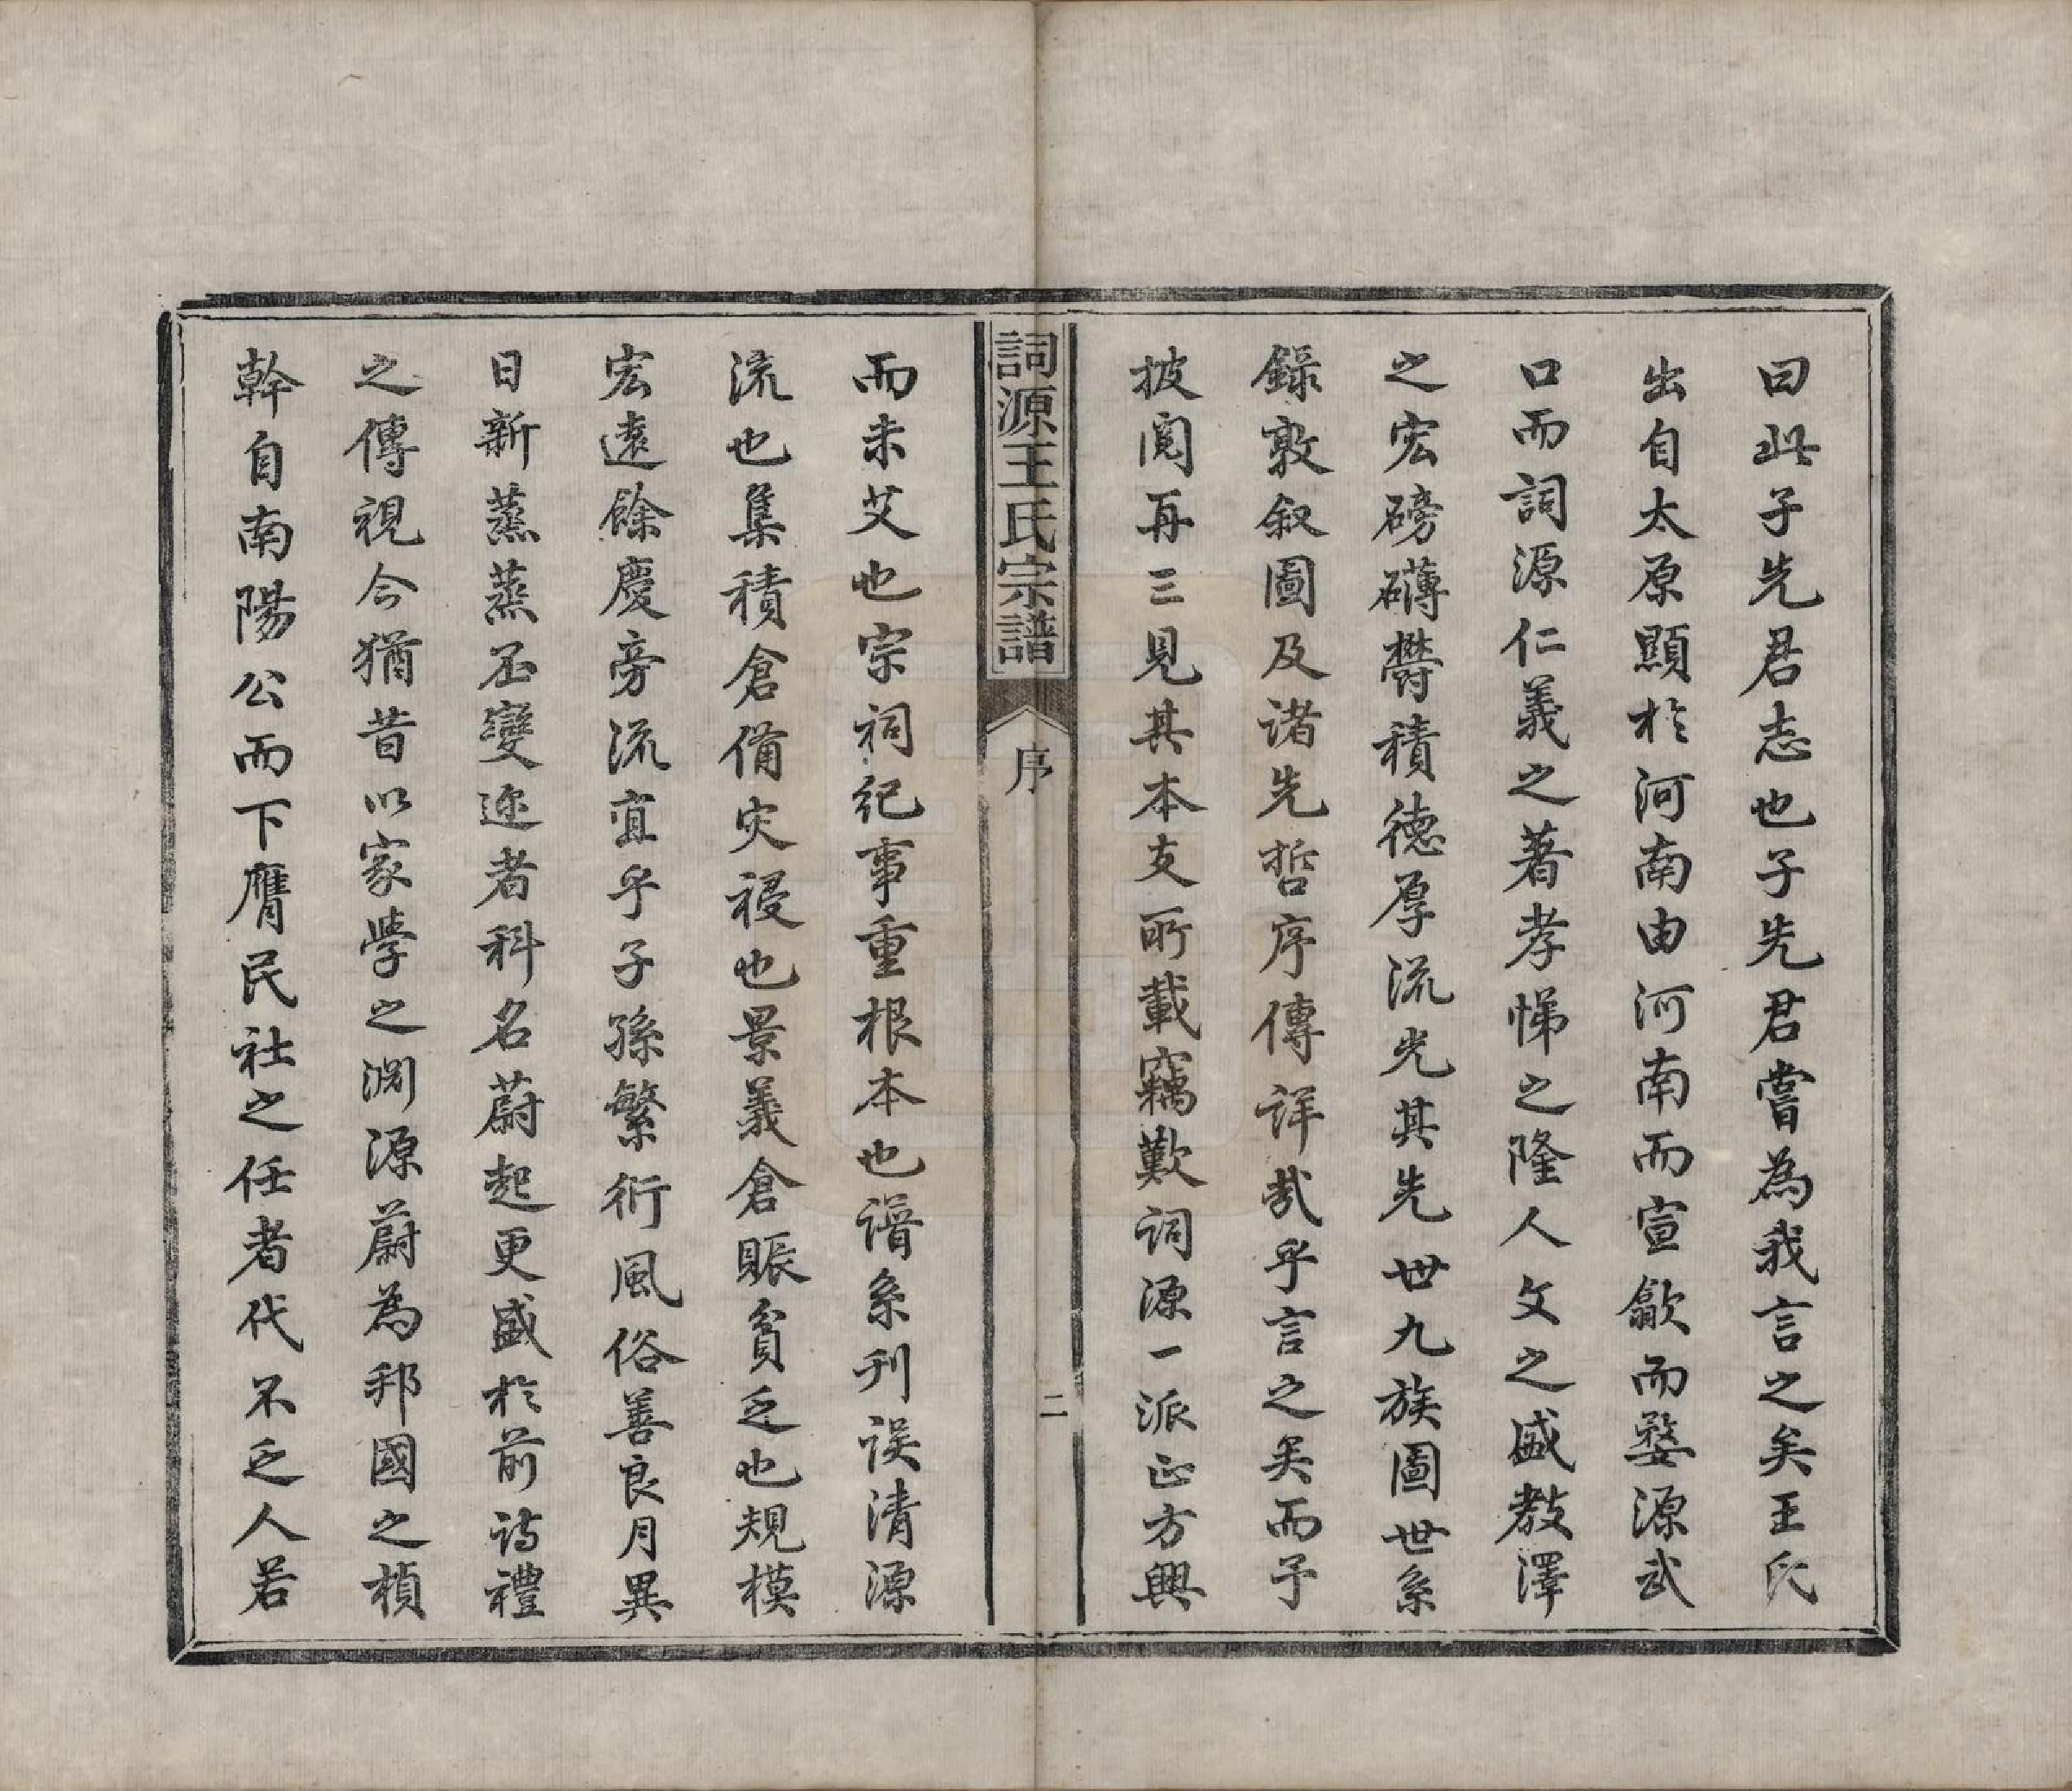 曰此子先君志也子先君嘗為我言之矣王氏
出自太原顯於河南由河南而宣歙而婺源武
口而詞源仁義之著孝悌之隆人文之盛教澤
之宏磅礴欝積德厚流光其先世九族圖世系
錄敦叙圖及诸先哲序傳详哉乎言之矣而予
披阅再三見其本支所載竊歎词源一派正方興
詞源王氏宗譜
序
二
而未艾也宗祠紀事重根本也谱系刊误清源
流也集積倉備灾祲也景義倉賑貧乏也規模
宏遠餘慶旁流宜乎子孫繁衍風俗善良月異
日新蒸蒸丕變迩者科名蔚起更盛於前诗禮
之傳視今猶昔以家學之渊源蔚為邦國之楨
幹自南陽公而下膺民社之任者代不乏人若